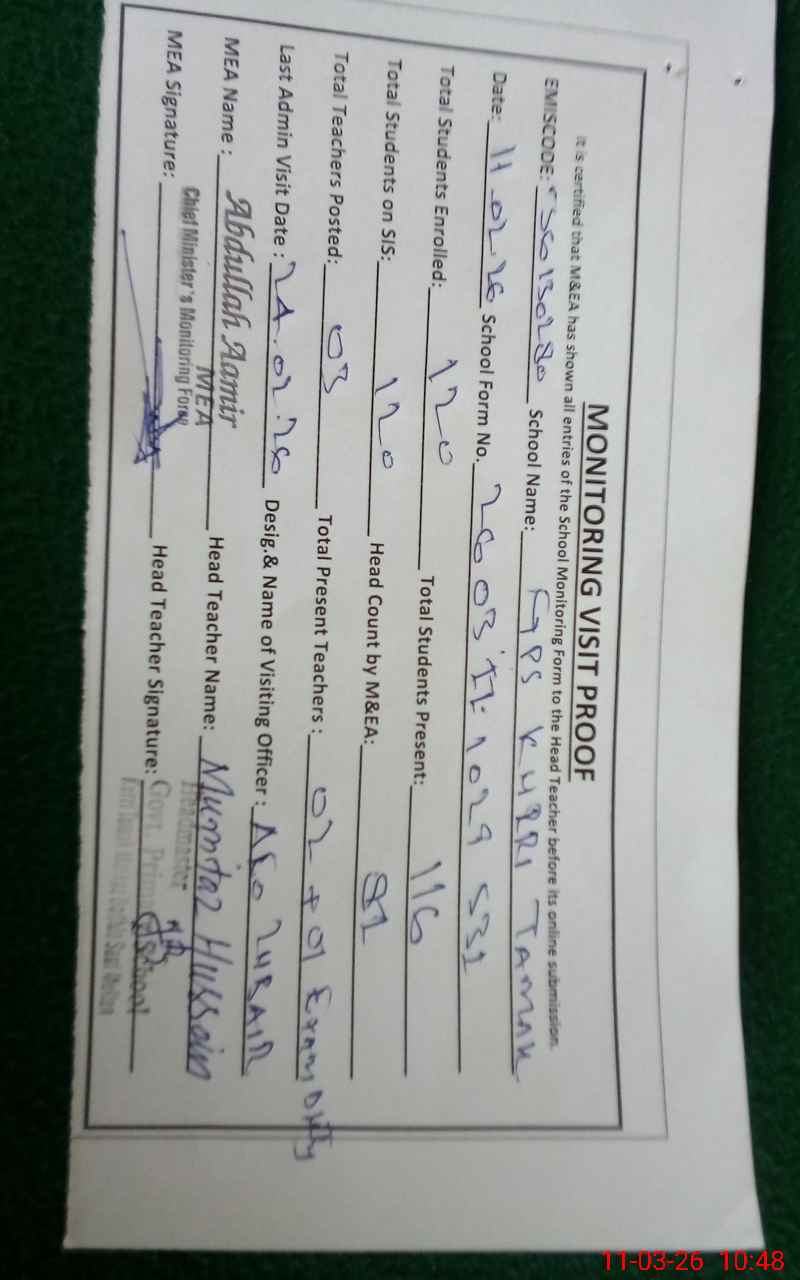 MONITORING VISIT PROOF
It is certified that M&EA has shown all entries of the School Monitoring Form to the Head Teacher before its online submission.
EMISCODE: School Name: GPS KHARI TAMAK
Date: 11.02.26 School Form No.
Total Students Enrolled: 120 Total Students Present: 116
Total Students on SIS: 120 Head Count by M&EA: 91
Total Teachers Posted: 03 Total Present Teachers: 02 + 01 Exam Duty
Last Admin Visit Date: 24.02.26 Desig.& Name of Visiting Officer: AEO ZUBAIR
MEA Name: Abdullah Aamir Head Teacher Name: Mumtaz Hussain
MEA
Chief Minister's Monitoring Force
MEA Signature: Head Teacher Signature:
Headmaster
Govt. Primary School
11-03-26 10:48